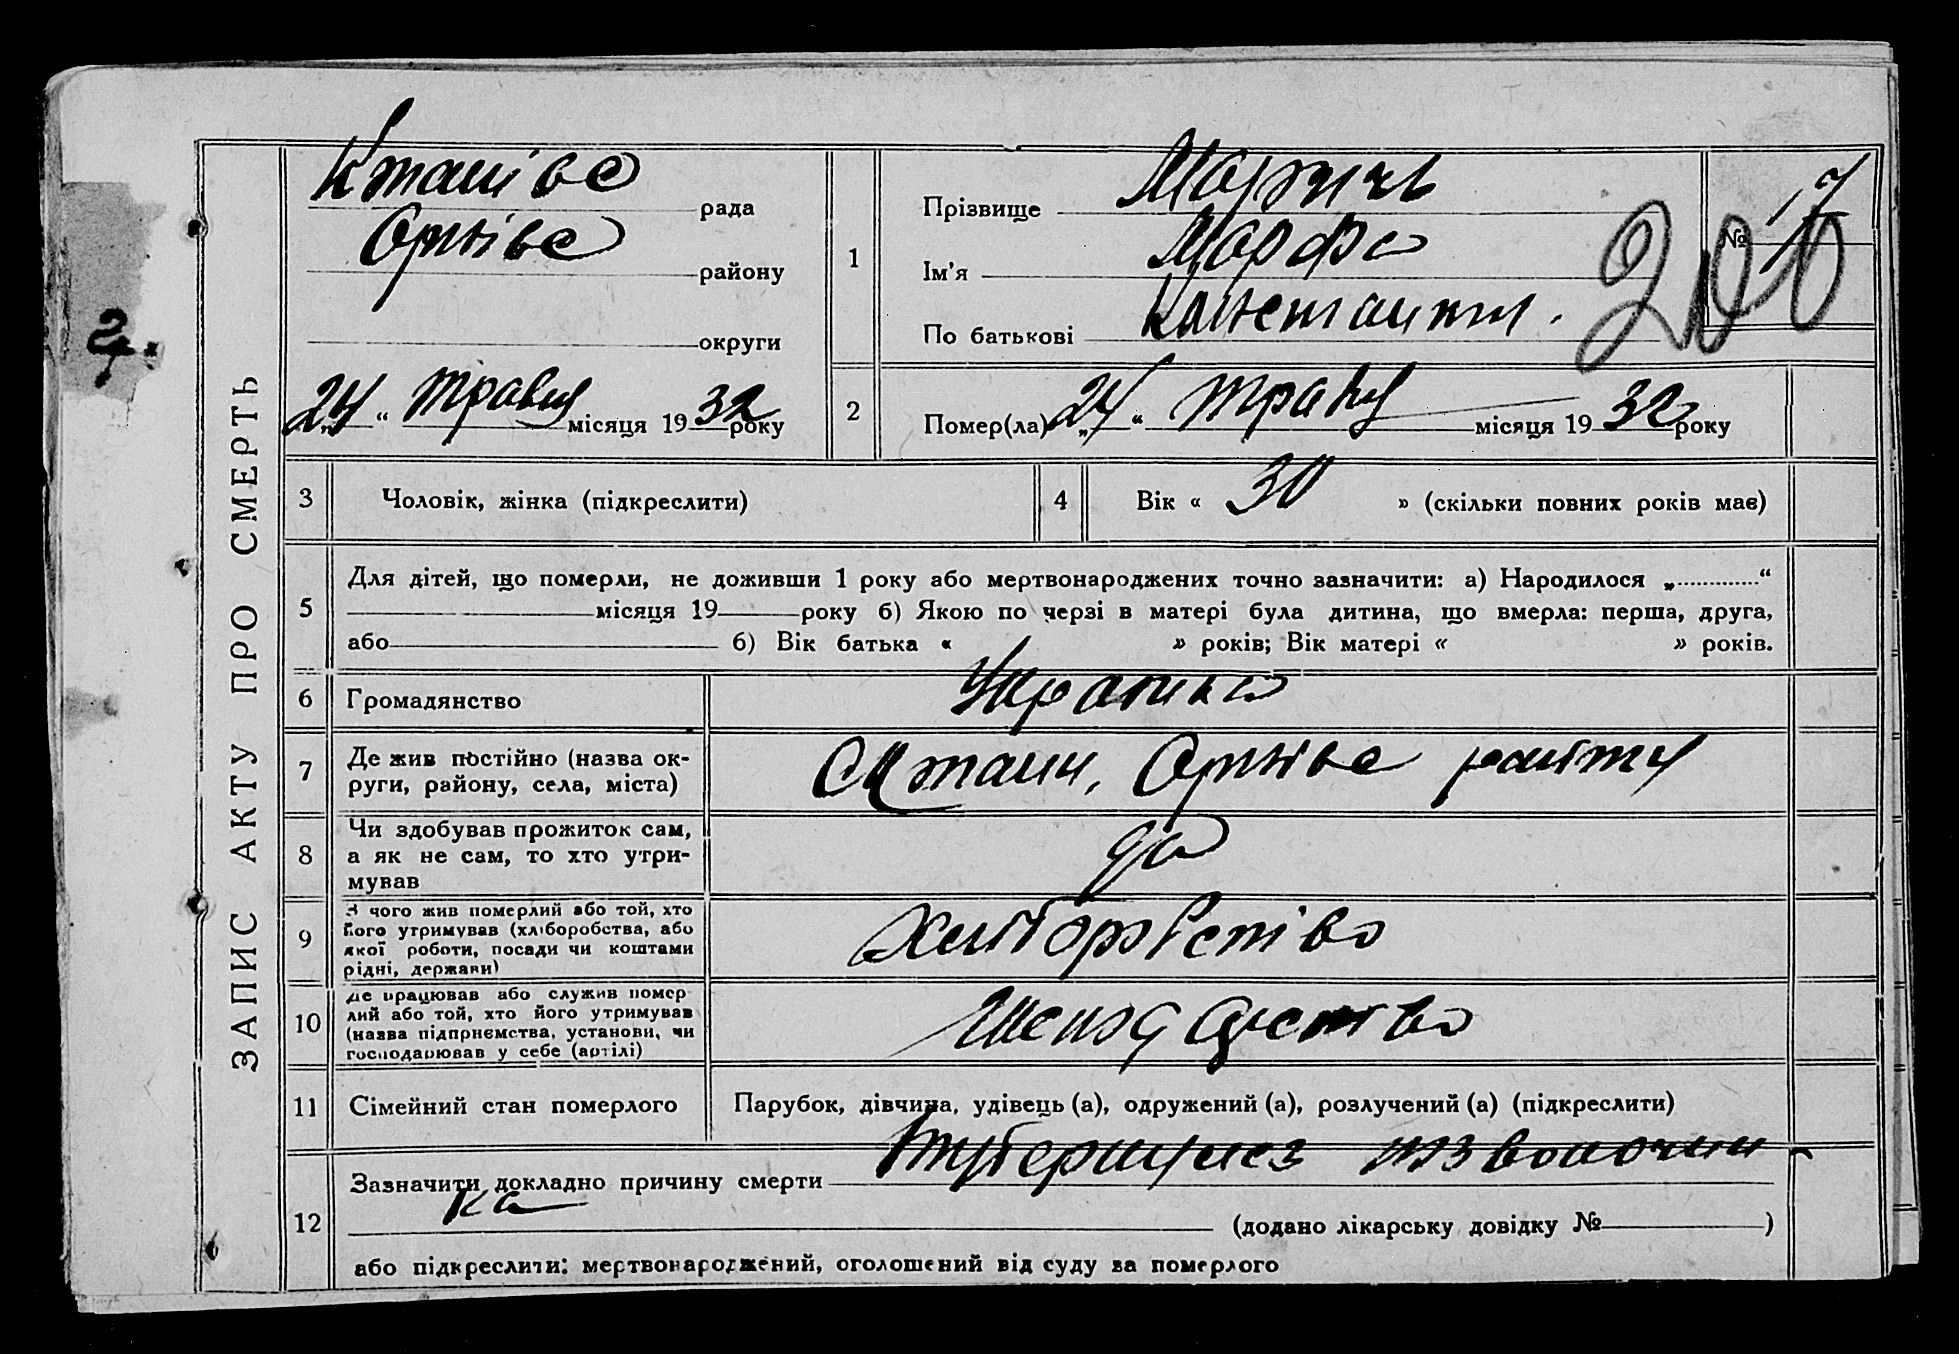 ЗАПИС АКТУ ПРО СМЕРТЬ
рада
району
округи
„24“ травня місяця 1932 року
1
Прізвище
Ім'я Марфа
По батькові Констант.
№ 17
200
2
Помер(ла) „24“ травня місяця 1932 року
3 Чоловік, жінка (підкреслити)
4 Вік « 30 » (скільки повних років має)
5 Для дітей, що померли, не доживши 1 року або мертвонароджених точно зазначити: а) Народилося „ “
місяця 19 року б) Якою по черзі в матері була дитина, що вмерла: перша, друга,
або б) Вік батька « » років; Вік матері « » років.
6 Громадянство Українка
7 Де жив постійно (назва ок-
руги, району, села, міста) району
8 Чи здобував прожиток сам,
а як не сам, то хто утри-
мував да
9 З чого жив померлий або той, хто
його утримував (хліборобства, або
якої роботи, посади чи коштами
рідні, держави) Хліборобство
10 Де працював або служив помер
лий або той, хто його утримував
(назва підприємства, установи, чи
господарював у себе (артілі)
11 Сімейний стан померлого Парубок, дівчина, удівець (а), одружений (а), розлучений (а) (підкреслити)
12 Зазначити докладно причину смерти туберкульоз позвоночни
ка (додано лікарську довідку № )
або підкреслити: мертвонароджений, оголошений від суду за померлого